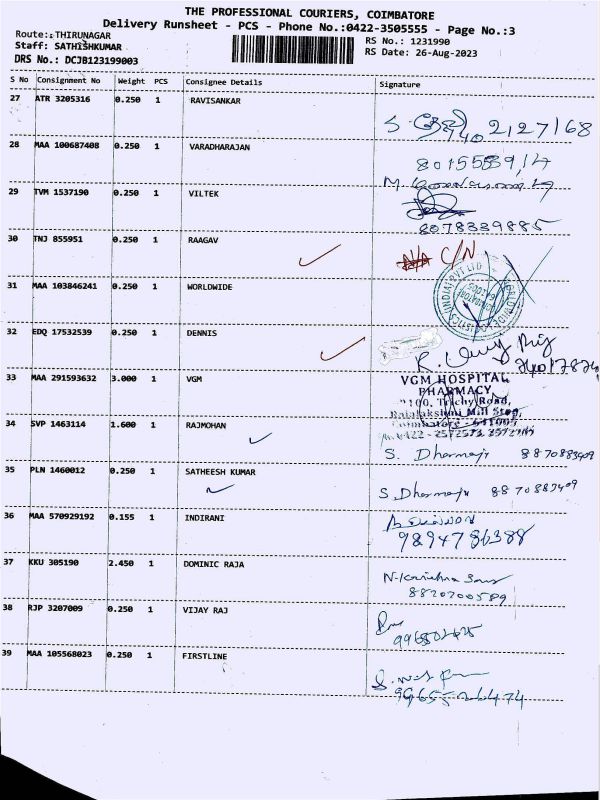 THE PROFESSIONAL COURIERS, COIMBATORE
Delivery Runsheet - PCS - Phone No.:0422-3505555 - Page No.:3
Route: THIRUNAGAR
RS No.: 1231990
Staff: SATHISHKUMAR
RS Date: 26-Aug-2023
DRS No.: DCJB123199003
S No Consignment No Weight PCS Consignee Details Signature
27 ATR 3205316 0.250 1 RAVISANKAR
28 MAA 100687408 0.250 1 VARADHARAJAN
29 TVM 1537190 0.250 1 VILTEK
8078339885
30 TNJ 855951 0.250 1 RAAGAV
N/A C/N
31 MAA 103846241 0.250 1 WORLDWIDE
32 EDQ 17532539 0.250 1 DENNIS
33 MAA 291593632 3.000 1 VGM
VGM HOSPITAL
PHARMACY
2100, Trichy Road,
Rajalakshmi Mill Stop,
Coimbatore - 641005
34 SVP 1463114 1.600 1 RAJMOHAN
S. Dharmaji 8870883409
35 PLN 1460012 0.250 1 SATHEESH KUMAR
S. Dharmaji 8870883409
36 MAA 570929192 0.155 1 INDIRANI
9894736388
37 KKU 305190 2.450 1 DOMINIC RAJA
8820700589
38 RJP 3207009 0.250 1 VIJAY RAJ
39 MAA 105568023 0.250 1 FIRSTLINE